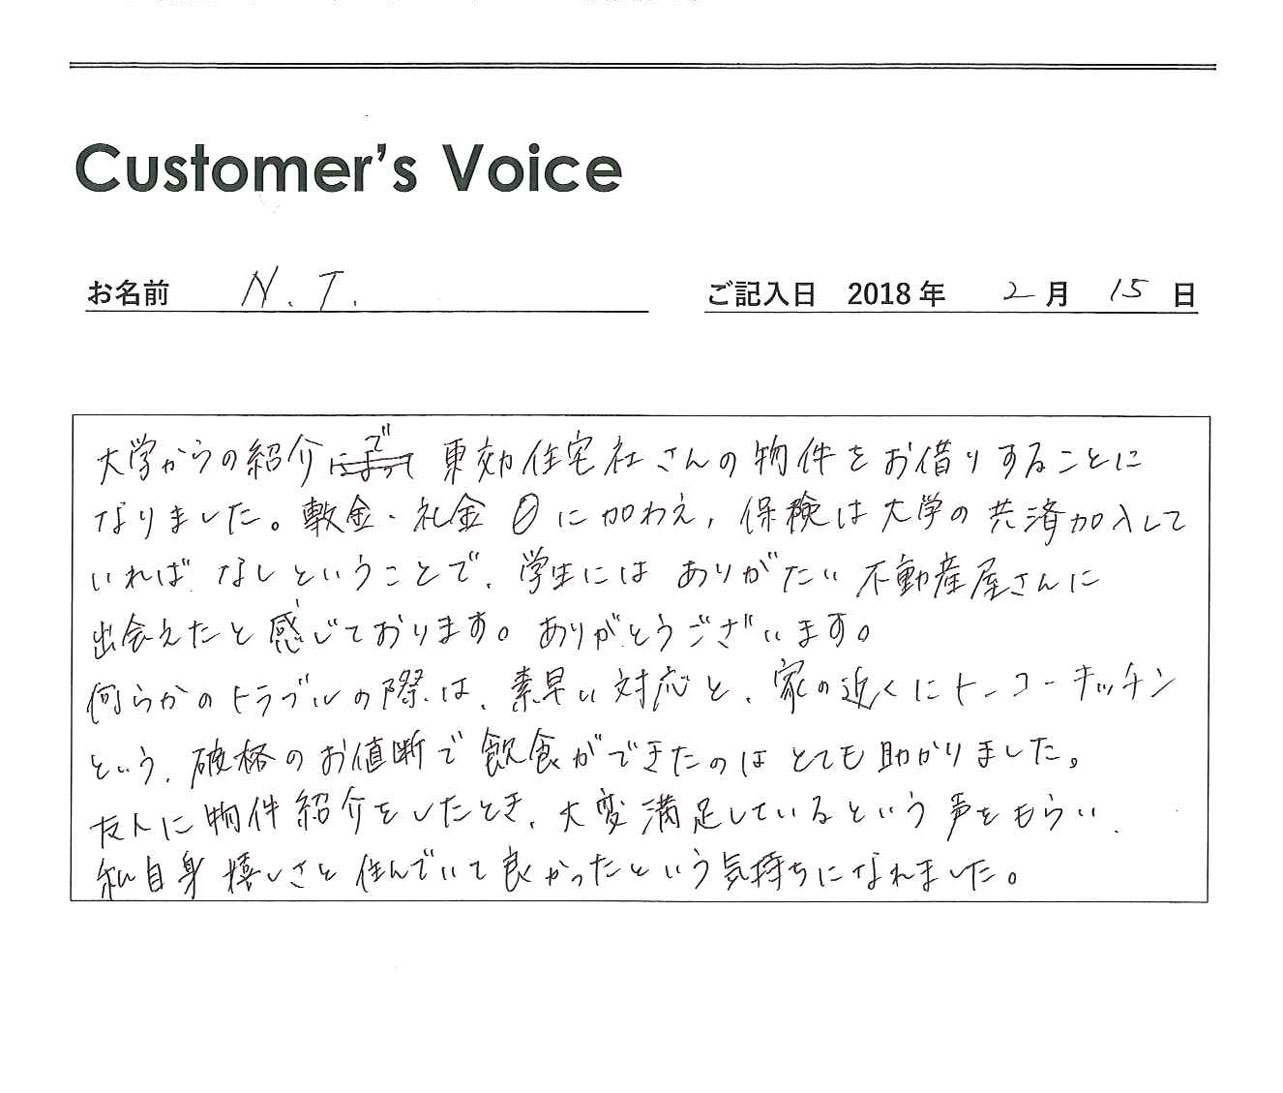 Customer's Voice
お名前 N.T.
ご記入日 2018年 2月 15日
大学からの紹介で 東効住宅社さんの物件をお借りすることに
なりました。敷金・礼金0に加わえ、保険は大学の共済加入して
いれば なしということで、学生には ありがたい 不動産屋さんに
出会えたと感じております。ありがとうございます。
何らかのトラブルの際は、素早い対応と、家の近くにトーコーキッチン
という、破格のお値断で飲食ができたのは とても助かりました。
友人に物件紹介をしたとき、大変満足しているという声をもらい、
私自身嬉しさと住んでいて良かったという気持ちになれました。